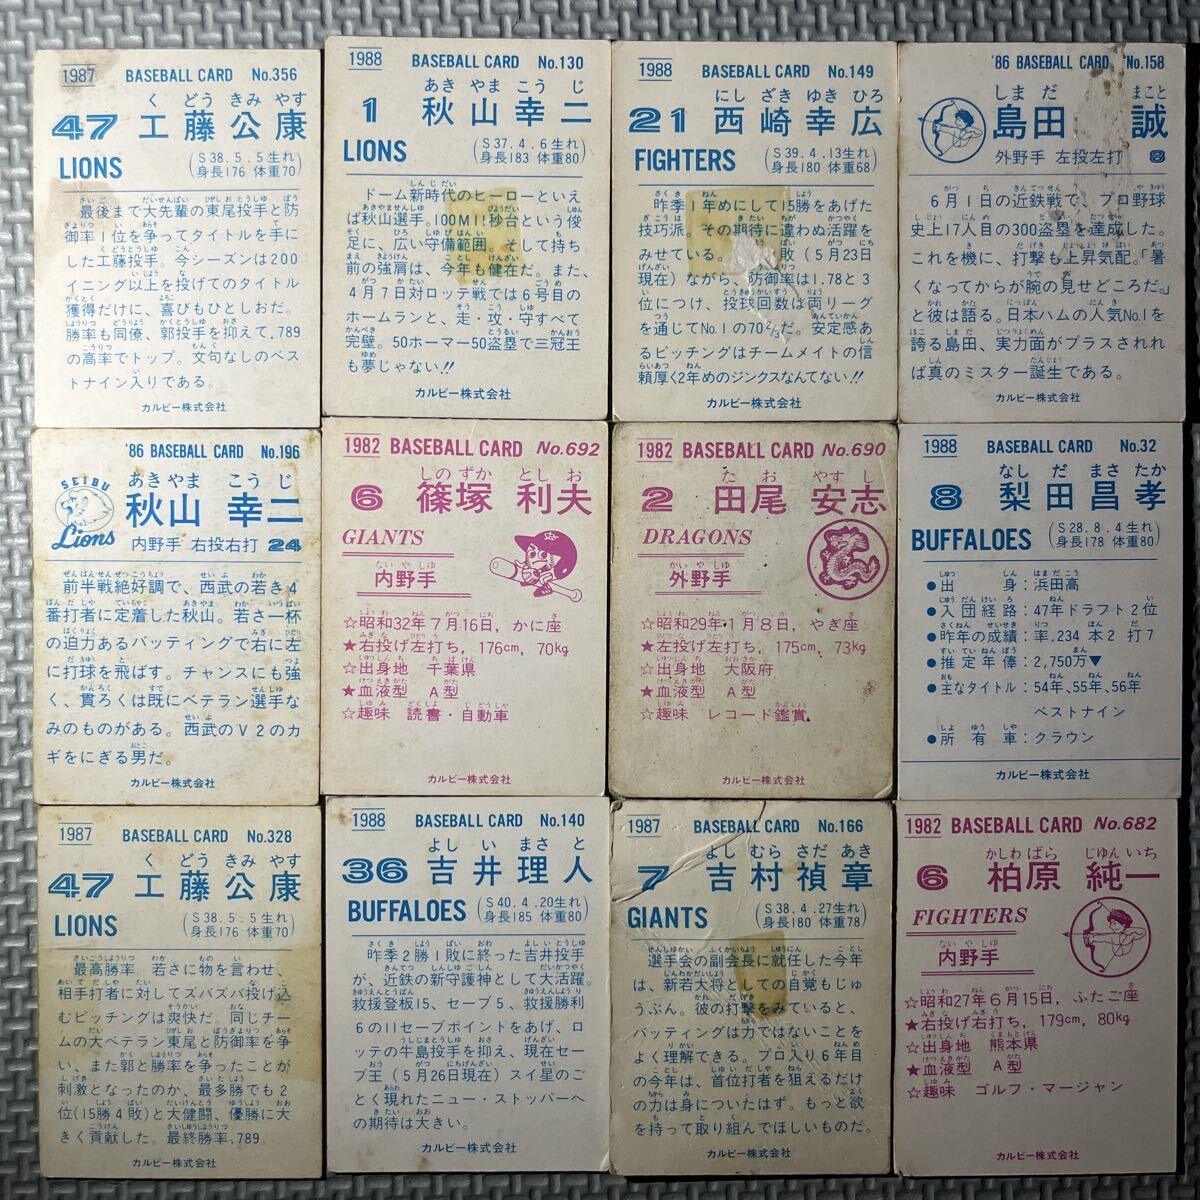 1987 BASEBALL CARD No.356
く どう きみ やす
47 工藤公康
LIONS
(S38.5.5生れ
身長176 体重70)
最後まで大先輩の東尾投手と防
御率1位を争ってタイトルを手に
した工藤投手。今シーズンは200
イニング以上を投げてのタイトル
獲得だけに、喜びもひとしおだ。
勝率も同僚、郭投手を抑えて.789
の高率でトップ。文句なしのベス
トナイン入りである。
カルビー株式会社
1988 BASEBALL CARD No.130
あき やま こう じ
1 秋山幸二
LIONS
(S37.4.6生れ
身長183 体重80)
ドーム新時代のヒーローといえ
ば秋山選手。100M11秒台という俊
足に、広い守備範囲。そして持ち
前の強肩は、今年も健在だ。また、
4月7日対ロッテ戦では6号目の
ホームランと、走・攻・守すべて
完璧。50ホーマー50盗塁で三冠王
も夢じゃない!!
カルビー株式会社
1988 BASEBALL CARD No.149
にし ざき ゆき ひろ
21 西崎幸広
FIGHTERS
(S39.4.13生れ
身長180 体重68)
昨季1年めにして15勝をあげた
技巧派。その期待に違わぬ活躍を
みせている。 敗(5月23日
現在)ながら、防御率は1.78と3
位につけ、投球回数は両リーグ
を通じてNo.1の70⅔だ。安定感あ
るピッチングはチームメイトの信
頼厚く2年めのジンクスなんてない!!
カルビー株式会社
'86 BASEBALL CARD No.158
しま だ まこと
島田 誠
外野手 左投左打 8
6月1日の近鉄戦で、プロ野球
史上17人目の300盗塁を達成した。
これを機に、打撃も上昇気配。「暑
くなってからが腕の見せどころだ。」
と彼は語る。日本ハムの人気No.1を
誇る島田、実力面がプラスされれ
ば真のミスター誕生である。
カルビー株式会社
'86 BASEBALL CARD No.196
SEIBU
Lions
あきやま こう じ
秋山 幸二
内野手 右投右打 24
前半戦絶好調で、西武の若き4
番打者に定着した秋山。若さ一杯
の迫力あるバッティングで右に左
に打球を飛ばす。チャンスにも強
く、貫ろくは既にベテラン選手な
みのものがある。西武のV2のカ
ギをにぎる男だ。
カルビー株式会社
1982 BASEBALL CARD No.692
しの ずか とし お
6 篠塚 利夫
GIANTS
ないやしゅ
内野手
☆昭和32年7月16日, かに座
★右投げ左打ち, 176cm, 70kg
☆出身地 千葉県
★血液型 A型
☆趣味 読書・自動車
カルビー株式会社
1982 BASEBALL CARD No.690
た お やす し
2 田尾 安志
DRAGONS
がいやしゅ
外野手
☆昭和29年1月8日, やぎ座
★左投げ左打ち, 175cm, 73kg
☆出身地 大阪府
★血液型 A型
☆趣味 レコード鑑賞
カルビー株式会社
1988 BASEBALL CARD No.32
なし だ まさ たか
8 梨田昌孝
BUFFALOES
(S28.8.4生れ
身長178 体重80)
●出 身:浜田高
●入団経路:47年ドラフト2位
●昨年の成績:率.234 本2 打7
●推定年俸:2,750万▼
●主なタイトル:54年、55年、56年
ベストナイン
●所有車:クラウン
カルビー株式会社
1987 BASEBALL CARD No.328
く どう きみ やす
47 工藤公康
LIONS
(S38.5.5生れ
身長176 体重70)
最高勝率 若さに物を言わせ、
相手打者に対してズバズバ投げ込
むピッチングは爽快だ。同じチー
ムの大ベテラン東尾と防御率を争
い、また郭と勝率を争ったことが
刺激となったのか、最多勝でも2
位(15勝4敗)と大健闘、優勝に大
きく貢献した。最終勝率.789。
カルビー株式会社
1988 BASEBALL CARD No.140
よし い まさ と
36 吉井理人
BUFFALOES
(S40.4.20生れ
身長185 体重80)
昨季2勝1敗に終った吉井投手
が、近鉄の新守護神として大活躍。
救援登板15、セーブ5、救援勝利
6の11セーブポイントをあげ、ロ
ッテの牛島投手を抑え、現在セー
ブ王(5月26日現在)スイ星のご
とく現れたニュー・ストッパーへ
の期待は大きい。
カルビー株式会社
1987 BASEBALL CARD No.166
よし むら さだ あき
7 吉村禎章
GIANTS
(S38.4.27生れ
身長180 体重78)
選手会の副会長に就任した今年
は、新若大将としての自覚もじゅ
うぶん。彼の打撃をみていると、
バッティングは力ではないことを
よく理解できる。プロ入り6年目
の今年は、首位打者を狙えるだけ
の力は身についたはず。もっと欲
を持って取り組んでほしいものだ。
カルビー株式会社
1982 BASEBALL CARD No.682
かしわばら じゅんいち
6 柏原 純一
FIGHTERS
ないやしゅ
内野手
☆昭和27年6月15日, ふたご座
★右投げ右打ち, 179cm, 80kg
☆出身地 熊本県
★血液型 A型
☆趣味 ゴルフ・マージャン
カルビー株式会社